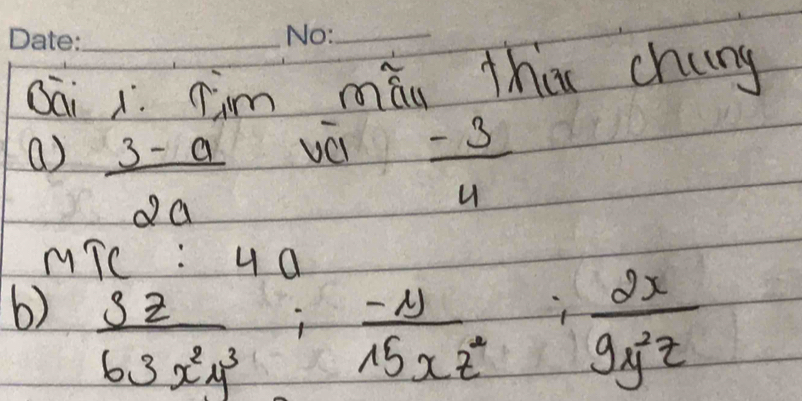 Date: No:
Bài 1. Tìm mẫu thức chung
a) 3-a/2a và -3/4
MTC : 4a
b) 3z/63x²y³ ; -y/15xz² ; 2x/9y²z